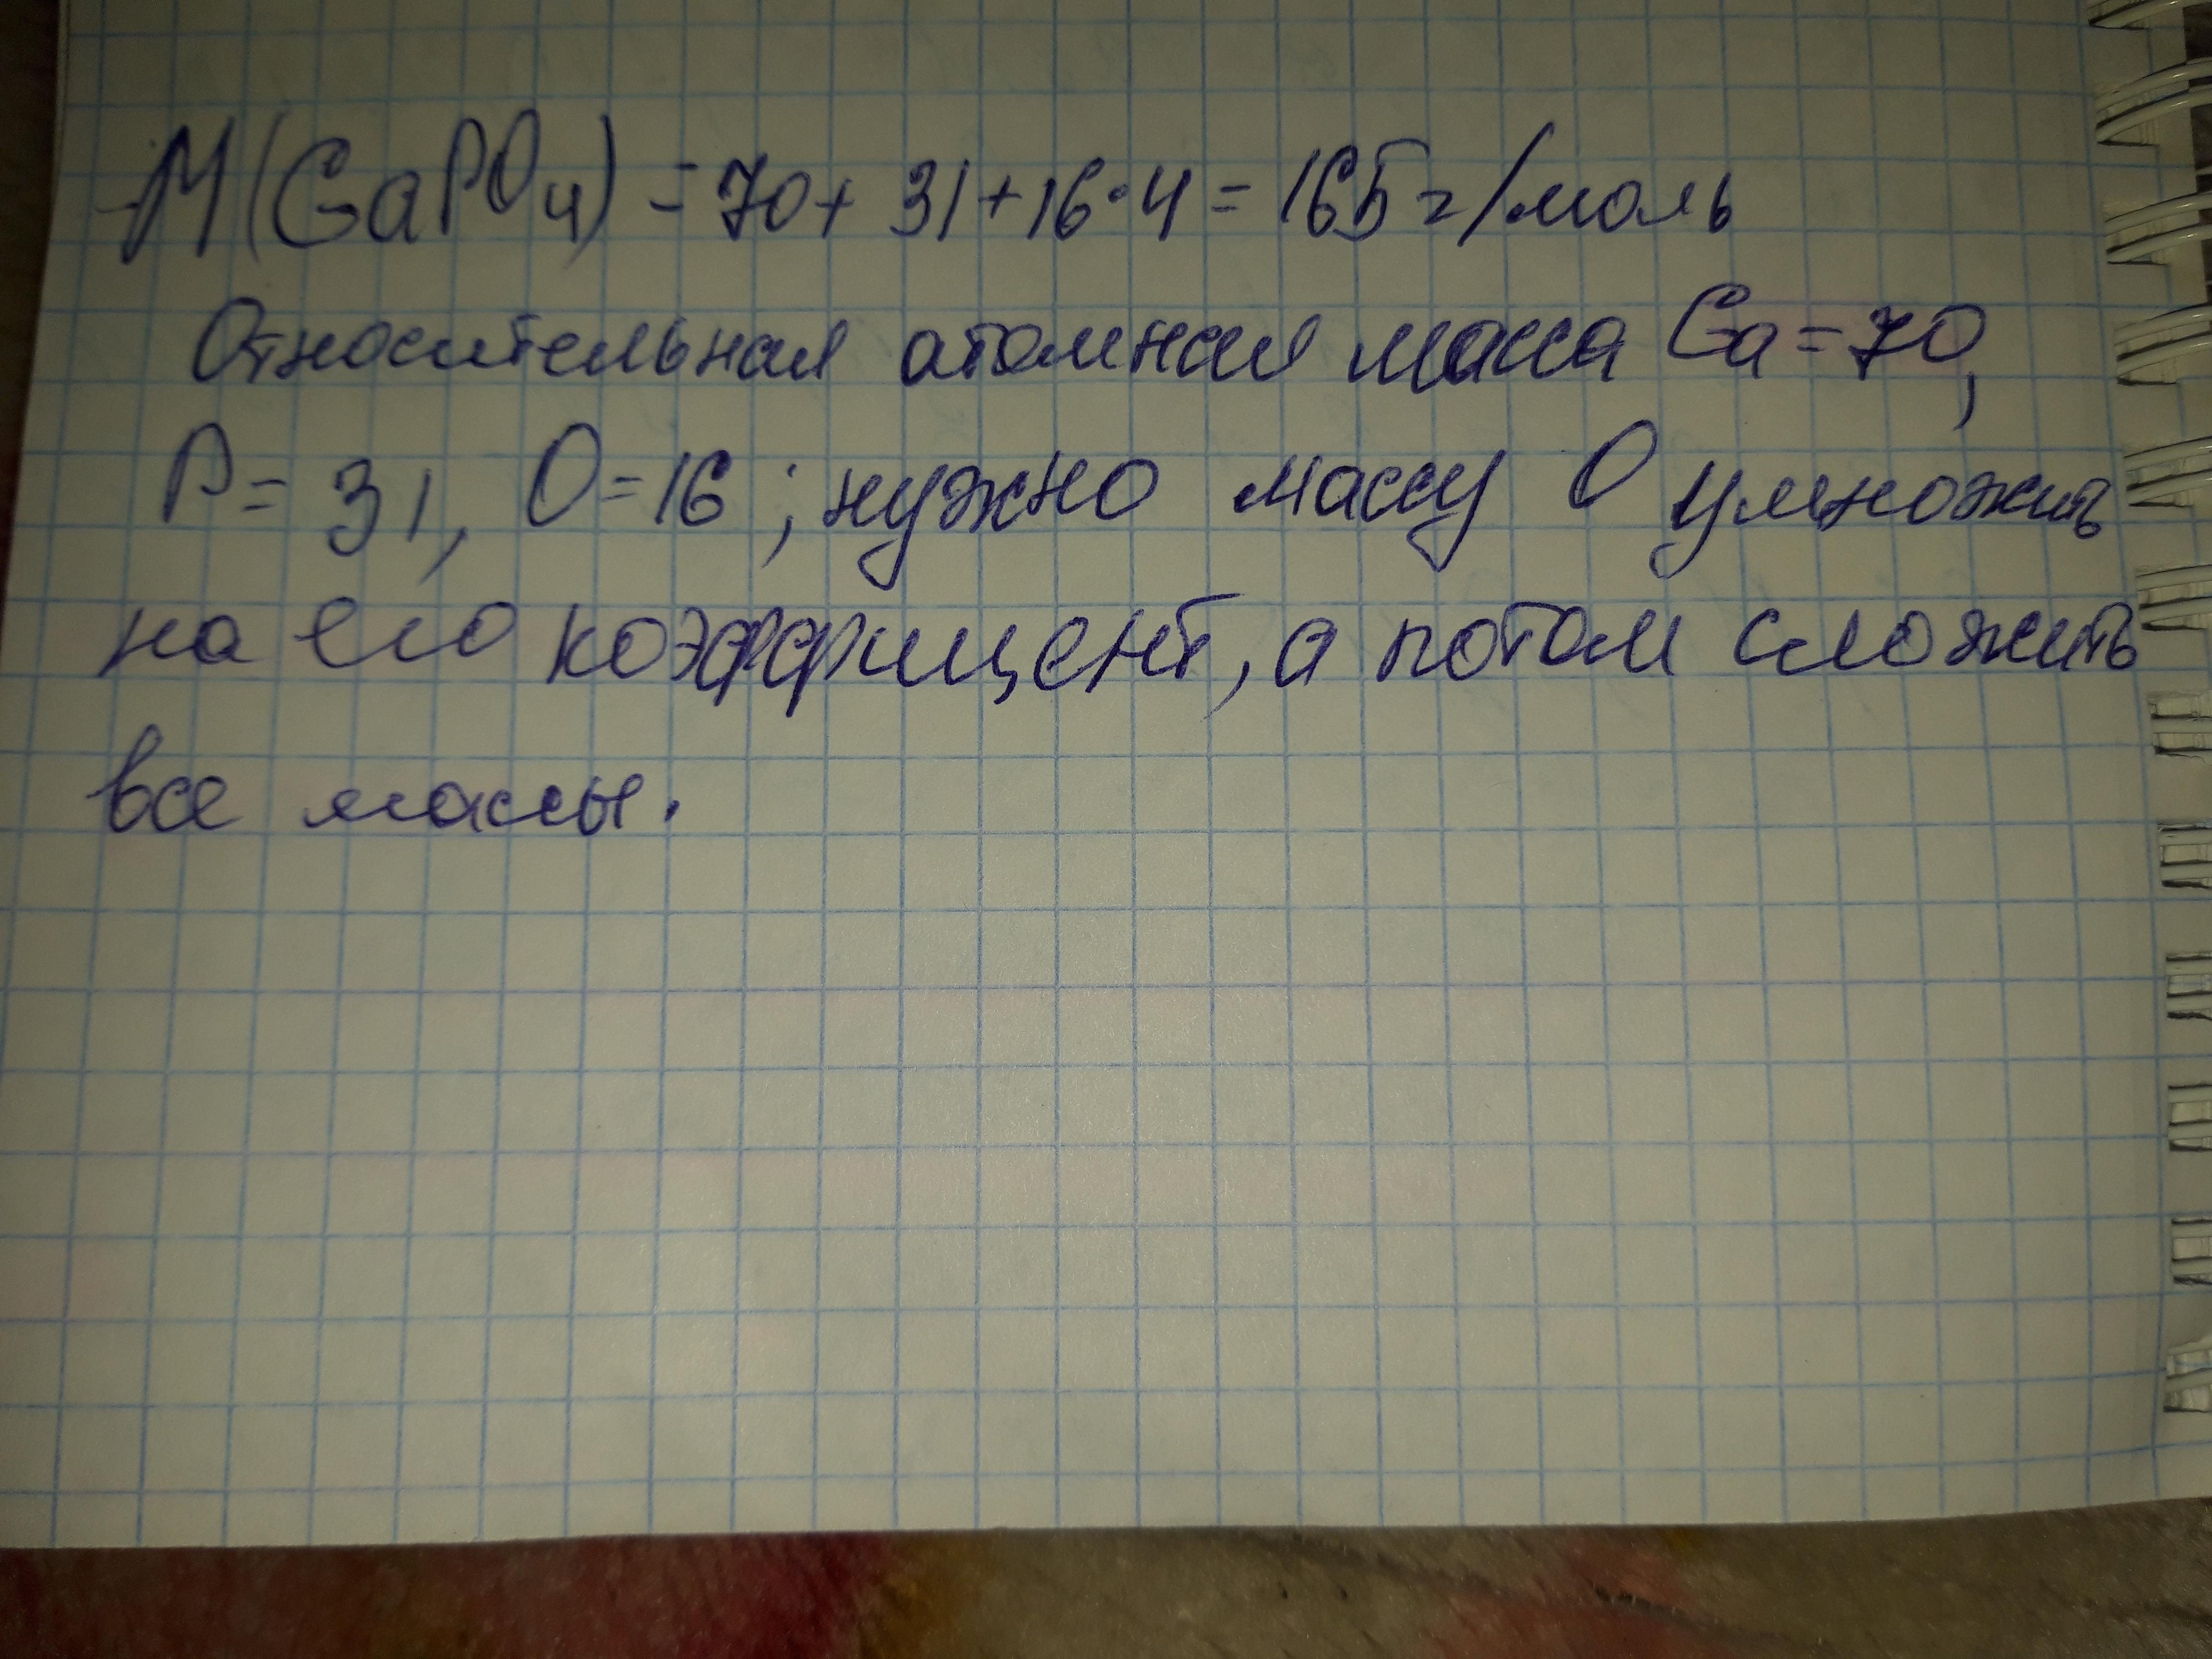 M(GaPO₄) = 70+ 31+16·4 = 165 г/моль
Относительная атомная масса Ga=70,
P= 31, O=16 ; нужно массу O умножить
на его коэффицент, а потом сложить
все массы.